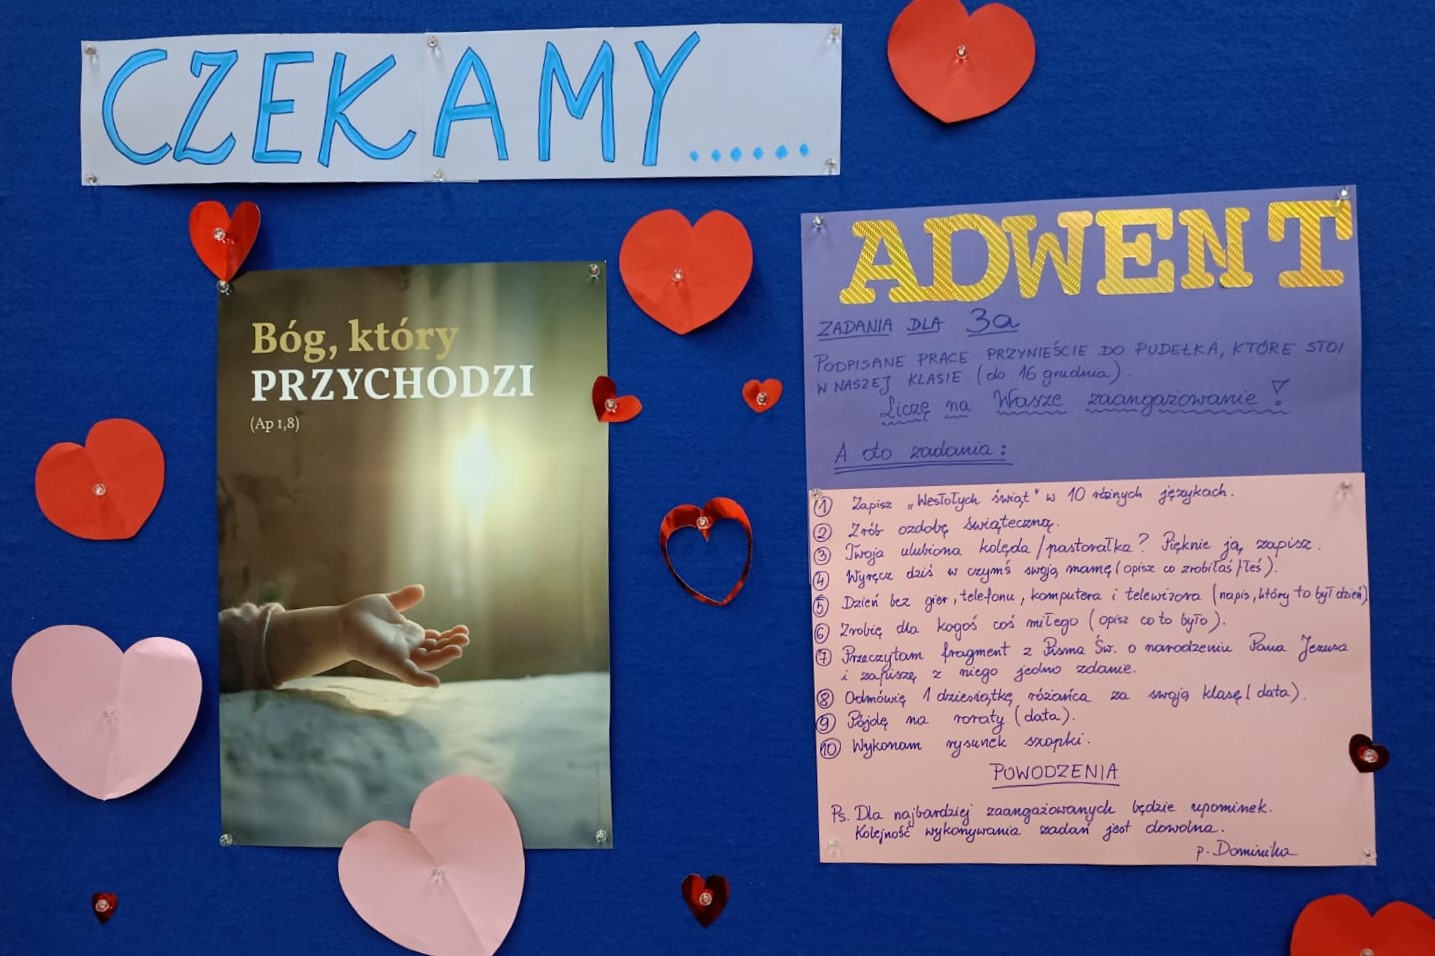 CZEKAMY......
Bóg, który
PRZYCHODZI
(Ap 1,8)
ADWENT
ZADANIA DLA 3a
PODPISANE PRACE PRZYNIEŚCIE DO PUDEŁKA, KTÓRE STOI
W NASZEJ KLASIE (do 16 grudnia).
Liczę na Wasze zaangażowanie!
A oto zadania:
1 Zapisz „Wesołych świąt" w 10 różnych językach.
2 Zrób ozdobę świąteczną.
3 Twoja ulubiona kolęda/pastorałka? Pięknie ją zapisz.
4 Wyręcz dziś w czymś swoją mamę (opisz co zrobiłaś/łeś).
5 Dzień bez gier, telefonu, komputera i telewizora (napis, który to był dzień)
6 Zrobię dla kogoś coś miłego (opisz co to było).
7 Przeczytam fragment z Pisma Św. o narodzeniu Pana Jezusa
i zapiszę z niego jedno zdanie.
8 Odmówię 1 dziesiątkę różańca za swoją klasę (data).
9 Pójdę na roraty (data).
10 Wykonam rysunek szopki.
POWODZENIA
Ps. Dla najbardziej zaangażowanych będzie upominek.
Kolejność wykonywania zadań jest dowolna.
p. Dominika